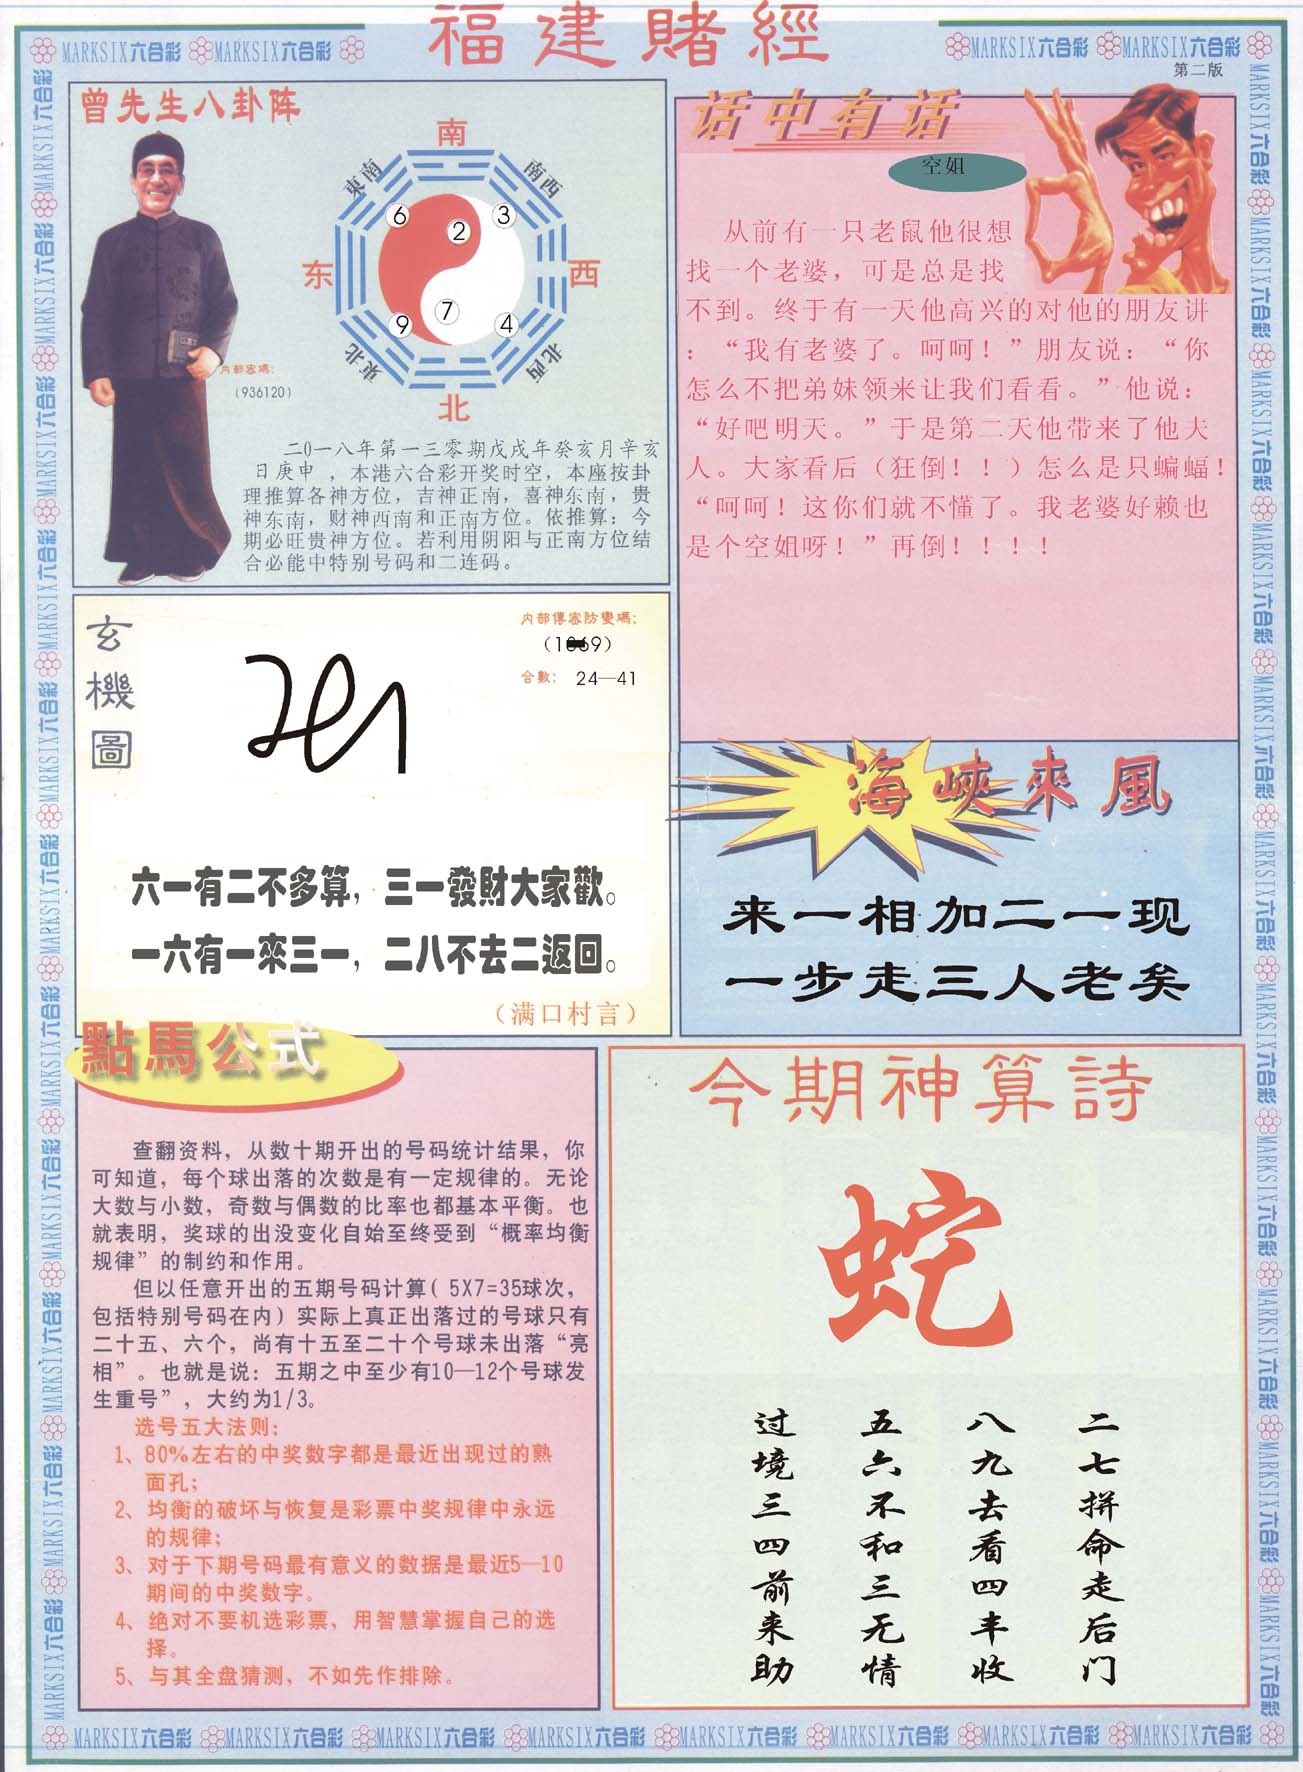 福建賭經
MARKSIX六合彩 MARKSIX六合彩
MARKSIX六合彩 MARKSIX六合彩
第二版
曾先生八卦阵
南
東南
南西
6
2
3
东
西
7
9
4
東北
北西
北
内部密碼:
(936120)
二0一八年第一三零期戊戌年癸亥月辛亥
日庚申，本港六合彩开奖时空，本座按卦
理推算各神方位，吉神正南，喜神东南，贵
神东南，财神西南和正南方位。依推算：今
期必旺贵神方位。若利用阴阳与正南方位结
合必能中特别号码和二连码。
话中有话
空姐
从前有一只老鼠他很想
找一个老婆，可是总是找
不到。终于有一天他高兴的对他的朋友讲
：“我有老婆了。呵呵！”朋友说：“你
怎么不把弟妹领来让我们看看。”他说：
“好吧明天。”于是第二天他带来了他夫
人。大家看后（狂倒！！）怎么是只蝙蝠！
“呵呵！这你们就不懂了。我老婆好赖也
是个空姐呀！”再倒！！！！
玄機圖
内部傳密防變碼:
合數: 24—41
六一有二不多算，三一發財大家歡。
一六有一來三一，二八不去二返回。
（满口村言）
海峽來風
来一相加二一现
一步走三人老矣
點馬公式
查翻资料，从数十期开出的号码统计结果，你
可知道，每个球出落的次数是有一定规律的。无论
大数与小数，奇数与偶数的比率也都基本平衡。也
就表明，奖球的出没变化自始至终受到“概率均衡
规律”的制约和作用。
但以任意开出的五期号码计算（5X7=35球次，
包括特别号码在内）实际上真正出落过的号球只有
二十五、六个，尚有十五至二十个号球未出落“亮
相”。也就是说：五期之中至少有10—12个号球发
生重号”，大约为1/3。
选号五大法则：
1、80%左右的中奖数字都是最近出现过的熟
面孔；
2、均衡的破坏与恢复是彩票中奖规律中永远
的规律；
3、对于下期号码最有意义的数据是最近5—10
期间的中奖数字。
4、绝对不要机选彩票，用智慧掌握自己的选
择。
5、与其全盘猜测，不如先作排除。
今期神算詩
蛇
二七拼命走后门
八九去看四丰收
五六不和三无情
过境三四前来助
MARKSIX六合彩 MARKSIX六合彩 MARKSIX六合彩 MARKSIX六合彩 MARKSIX六合彩 MARKSIX六合彩 MARKSIX六合彩 MARKSIX六合彩